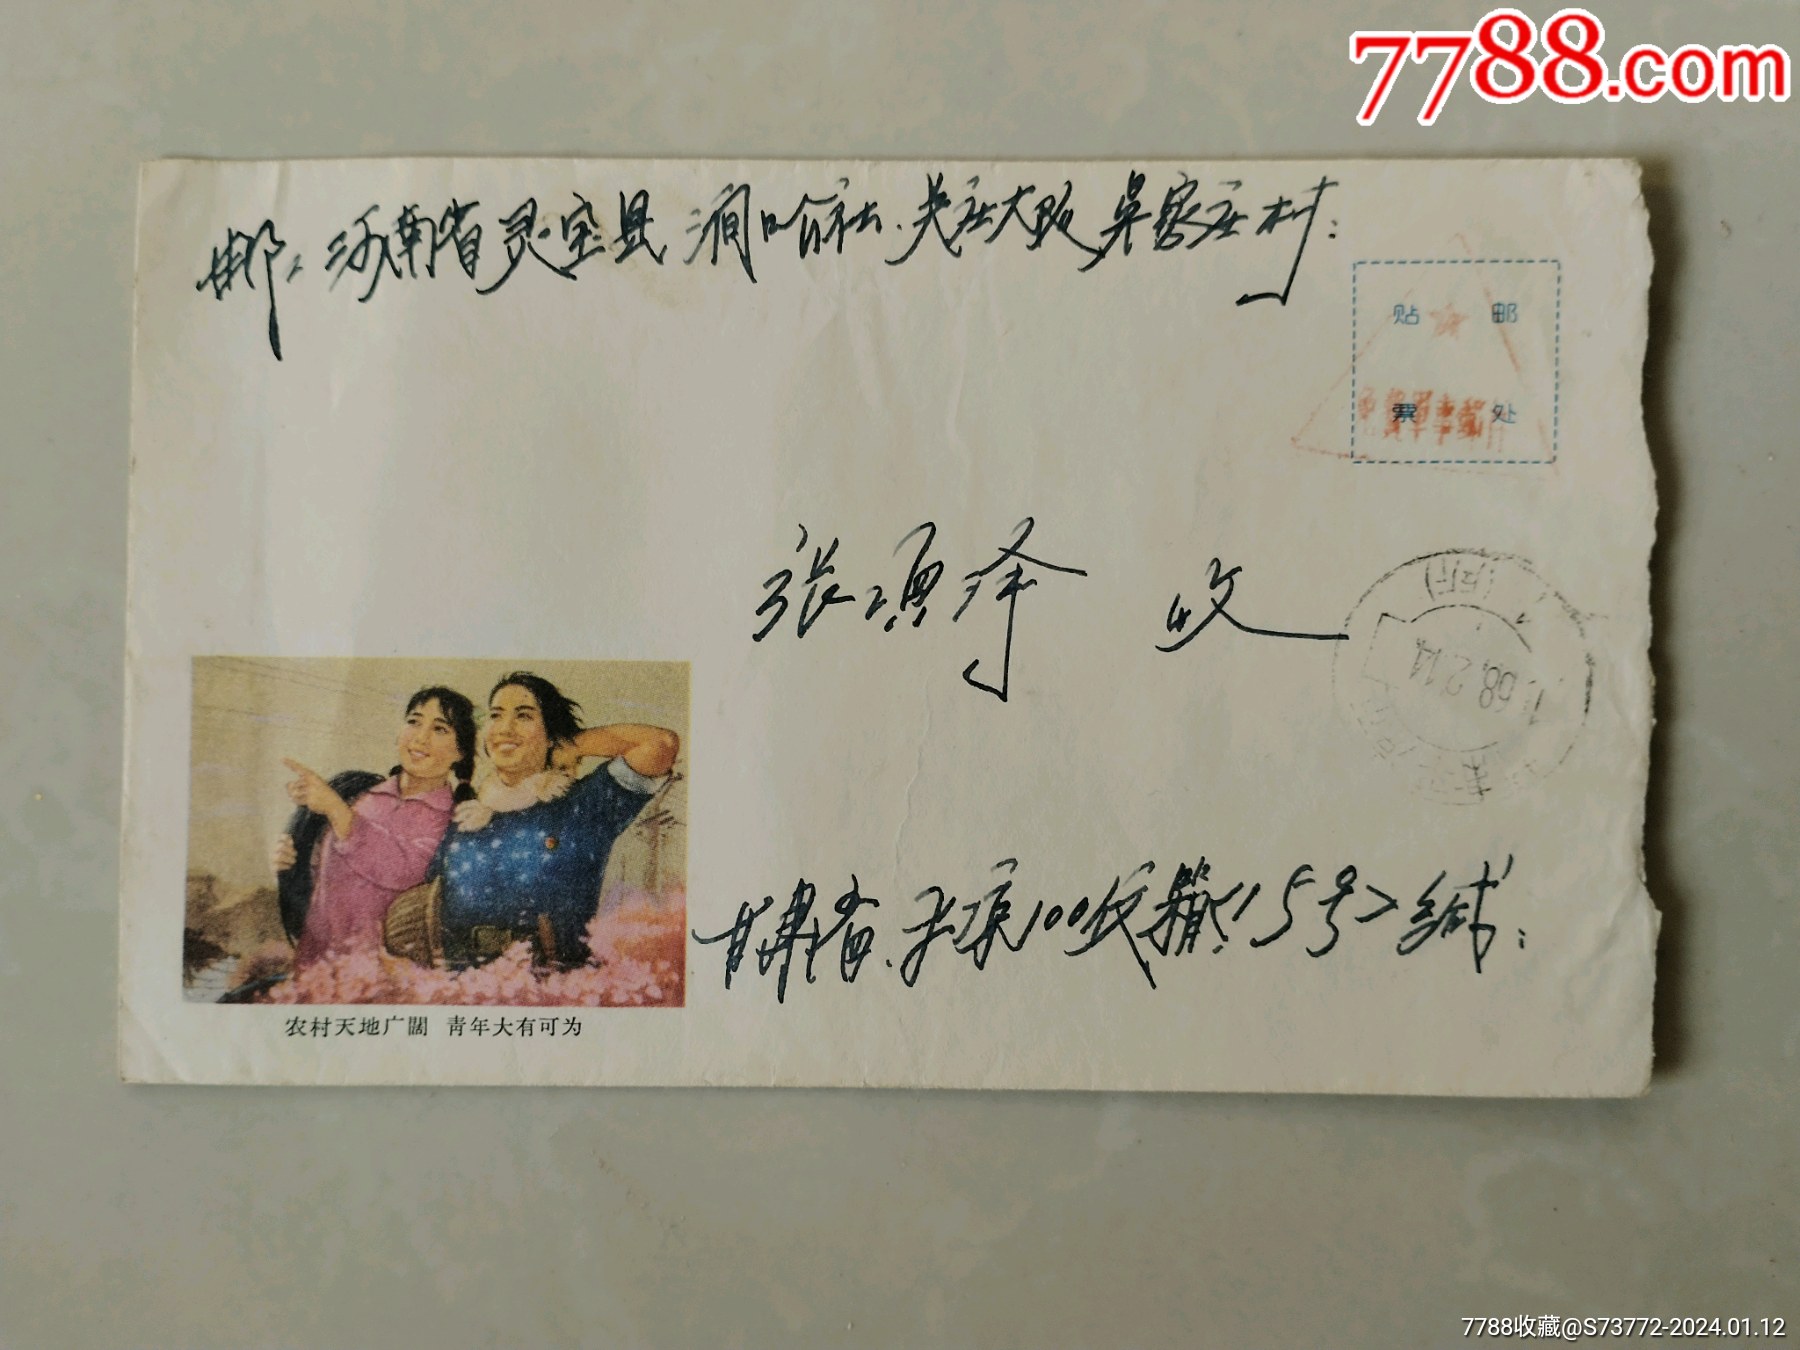 7788.com
邮：河南省灵宝县涧口公社.关庄大队吴家庄村：
贴 邮
票 处
免費軍事郵件
张项 收
68.2.14
甘肃省. 100信箱<15号>缄：
农村天地广闊 青年大有可为
7788收藏@S73772-2024.01.12